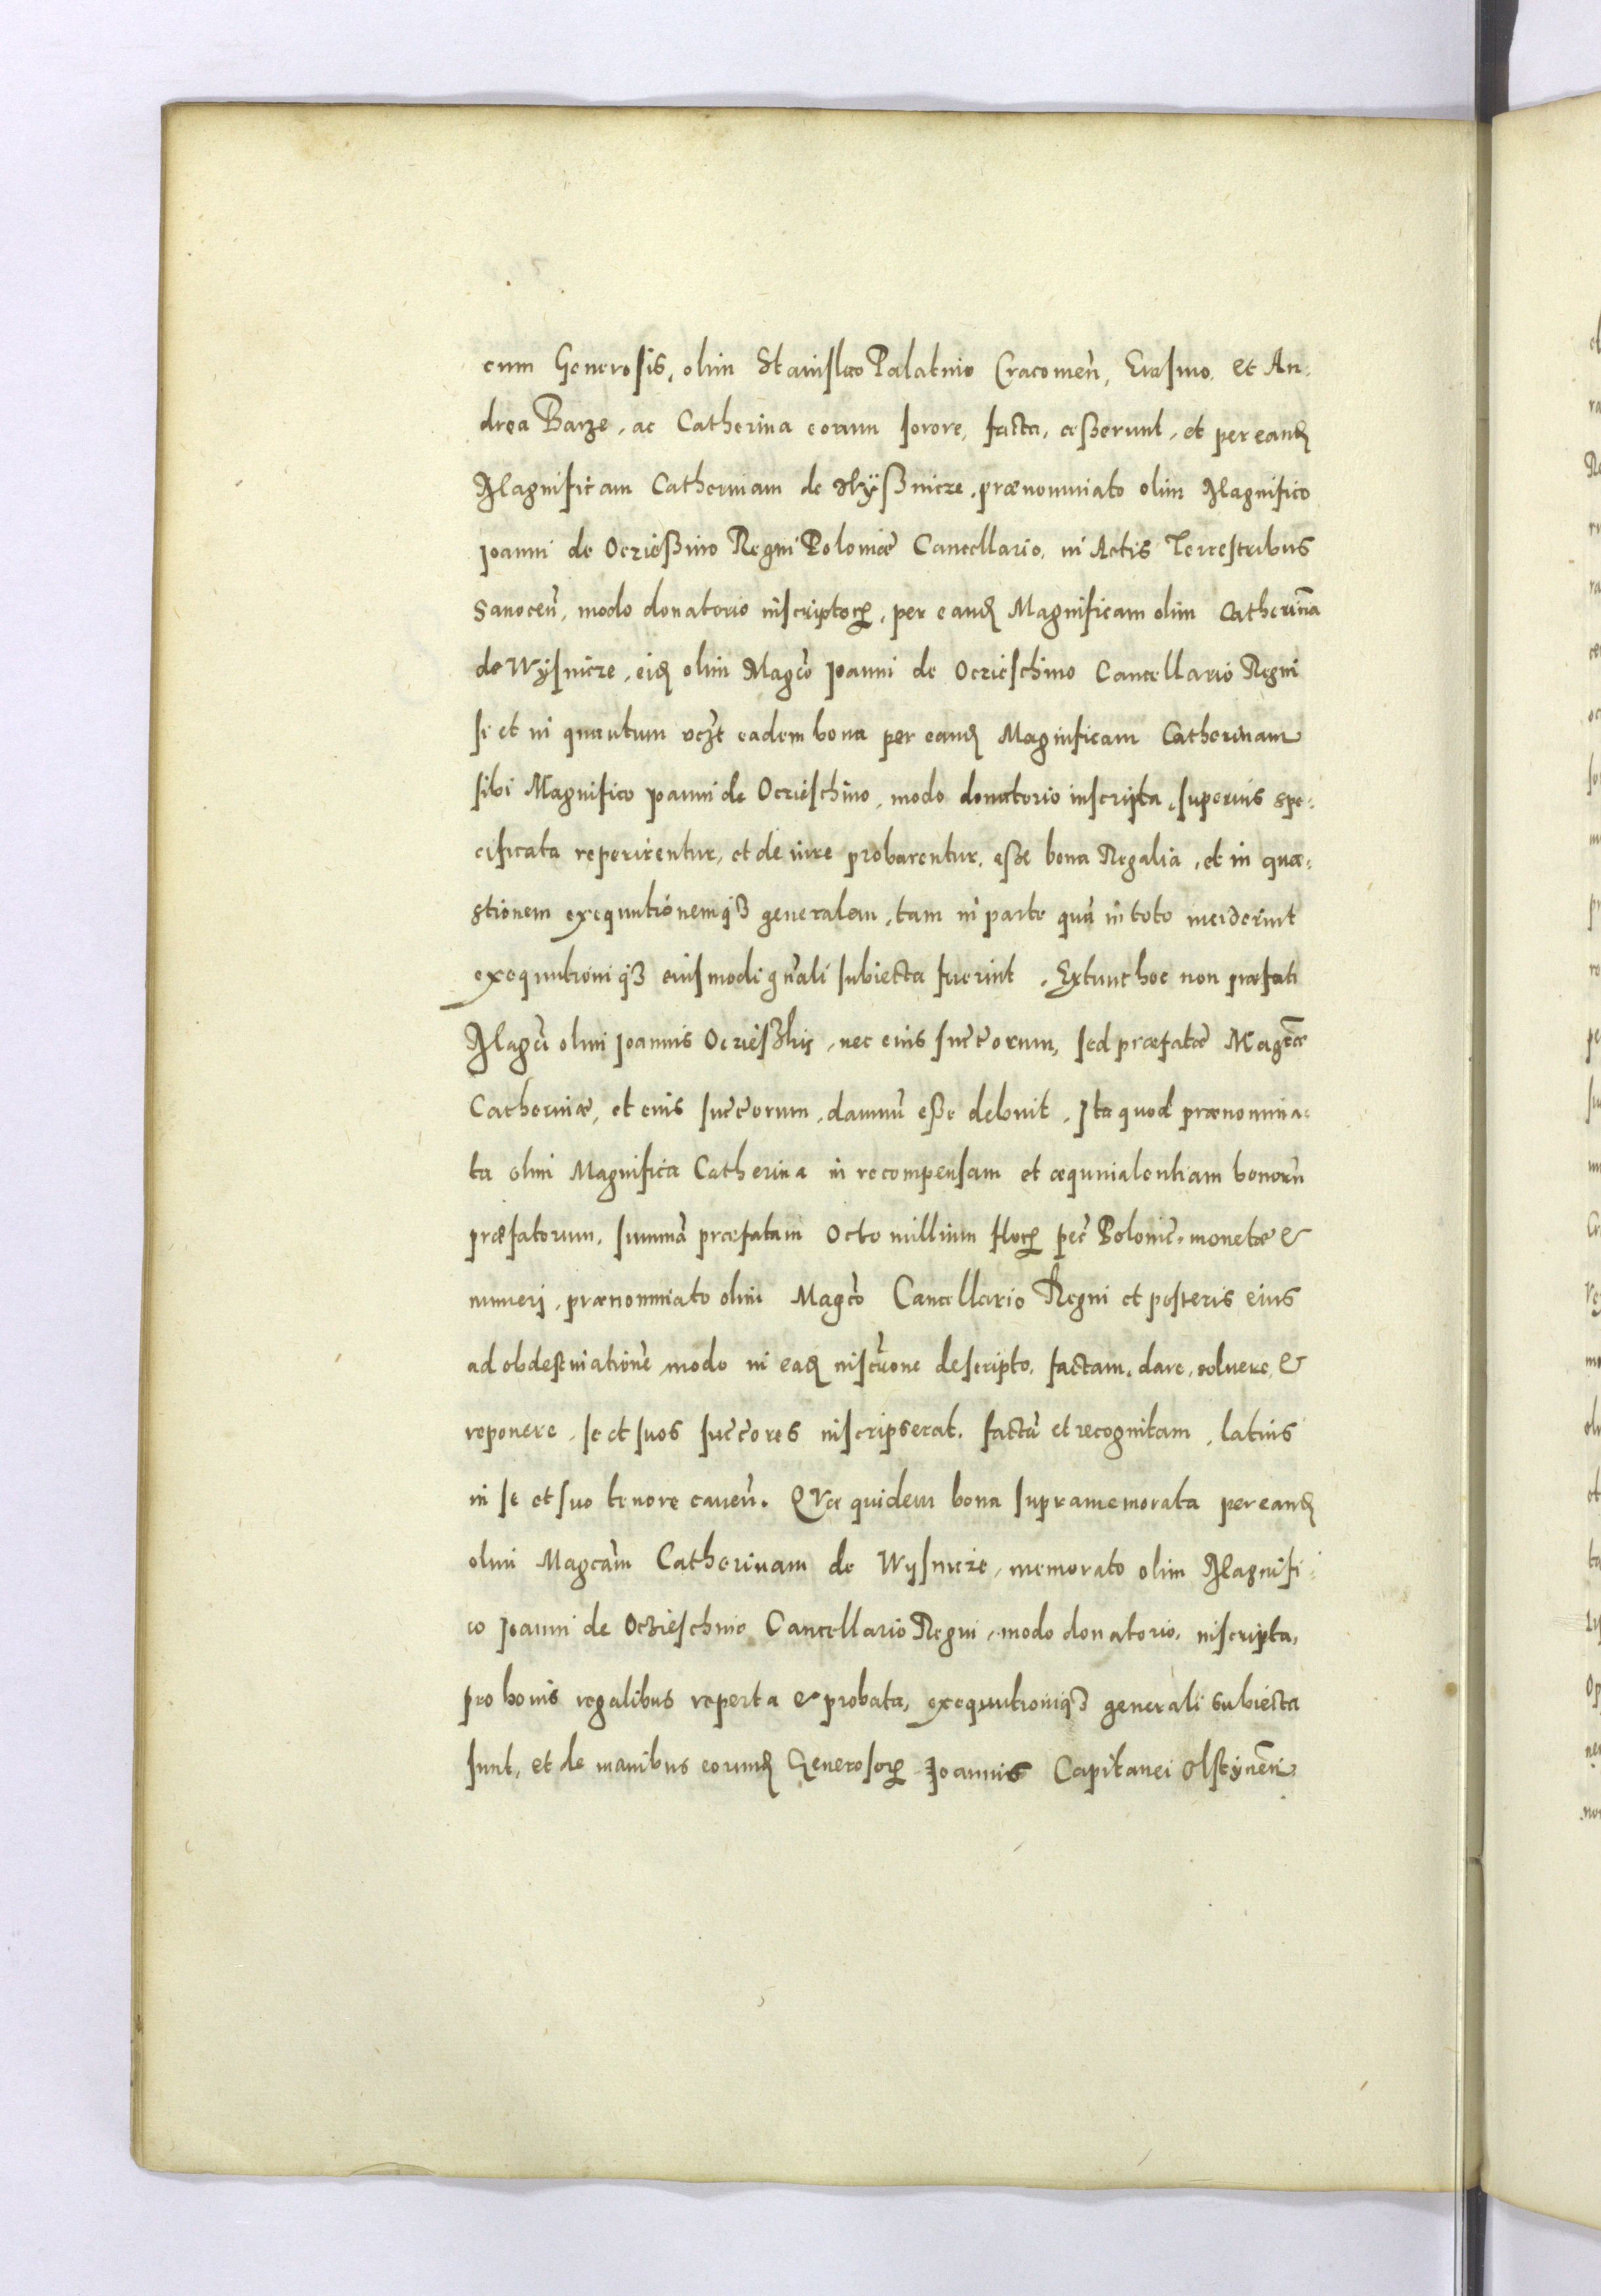 cum Generosis, olim Stanislao Palatino Cracovien̄, Erasmo, et An:
drea Barze, ac Catherina eorum sorore, facta, cesserunt, et per eand
Magnificam Catherinam de Wyßnicze, prænominato olim Magnifico
Joanni de Ocziesßino Regni Poloniæ Cancellario, in Actis Terrestribus
Sanocen̄, modo donatorio inscriptoꝝ, per eand Magnificam olim Catherinā
de Wÿsnicze, eid olim Magc̄o Joanni de Oczieschino Cancellario Regni
si et in quantum eadem bona per eand Magnificam Catherinam
sibi Magnifico Joanni de Oczieschino, modo donatorio inscripta, superius spe:
cificata reperirentur, et de iure probarentur, eße bona Regalia, et in quæ:
stionem exequutionemqꝫ generalem, tam in parte quā in toto inciderint
exequutioniqꝫ eiusmodi gn̄ali subiecta fuerint. Extunc hoc non præfati
Magc̄i olim Joannis Oczießkij, nec eius succ̄orum, sed præfatæ Magc̄æ
Catherinæ, et eius succ̄orum, damnū eße debuit. Ita quod prænomina:
ta olim Magnifica Catherina in recompensam et æquiualentiam bonorū
præfatorum, summā præfatam Octo millium floꝝ pec̄ Polonic̄. monetæ &
numeri, prænominato olim Magc̄o Cancellario Regni et posteris eius
ad obdestinationē modo in ead inscr̄one descripto, factam, dare, soluere, &
reponere, se et suos succ̄ores inscripserat, factā et recognitam, latius
in se et suo tenore cauen̄. Quæ quidem bona supramemorata per eand
olim Magcām Catherinam de Wysnicze, memorato olim Magnifi:
co Joanni de Oczieschino Cancellario Regni, modo donatorio, inscripta,
pro bonis regalibus reperta & probata, exequutioniqꝫ generali subiecta
sunt, et de manibus eorund Generosoꝝ Joannis Capitanei Olstynen̄